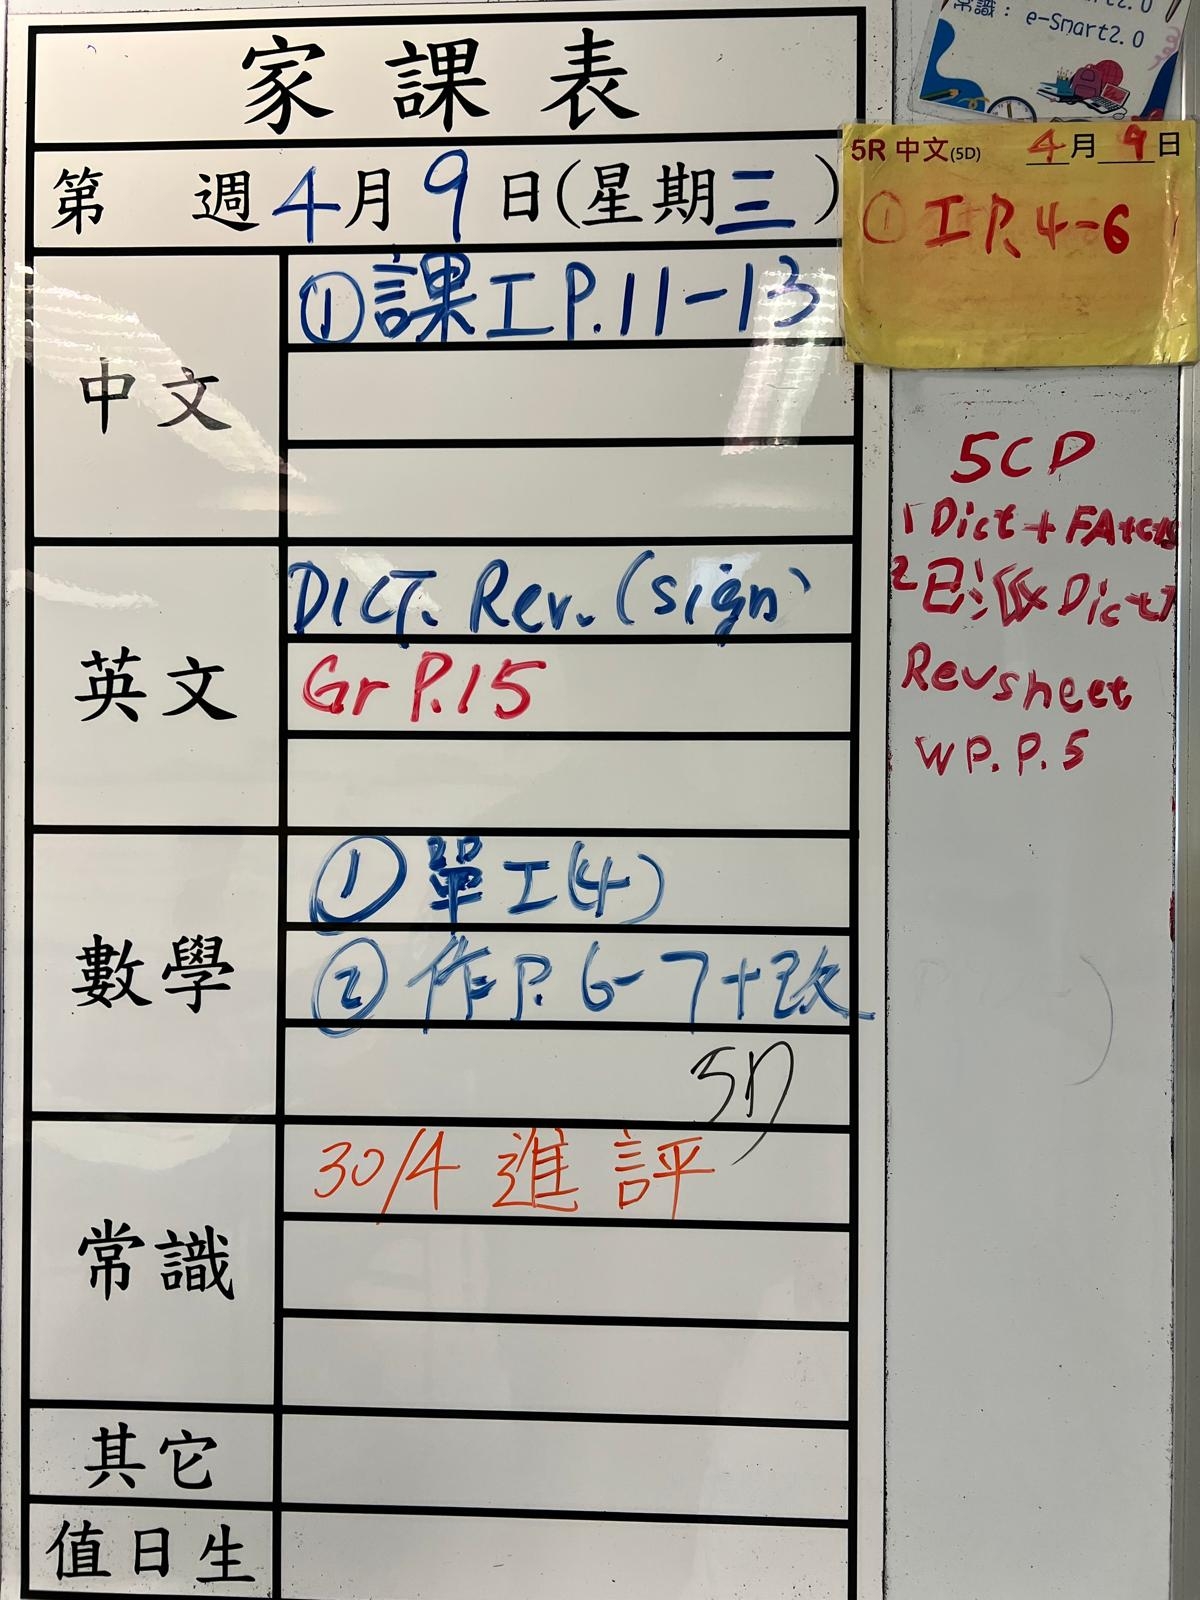 家課表
第 週 4月9日(星期三)
中文
①課工P.11-13
英文
DICT. Rev. (sign)
Gr P.15
數學
①單工(4)
②作P.6-7+改
5D
常識
30/4 進評
其它
值日生
常識: e-Smart2.0
5R 中文(5D) 4月9日
① 工 P. 4-6
5CD
1 Dict +
2 已派 Dict7
Rev sheet
W P. P. 5